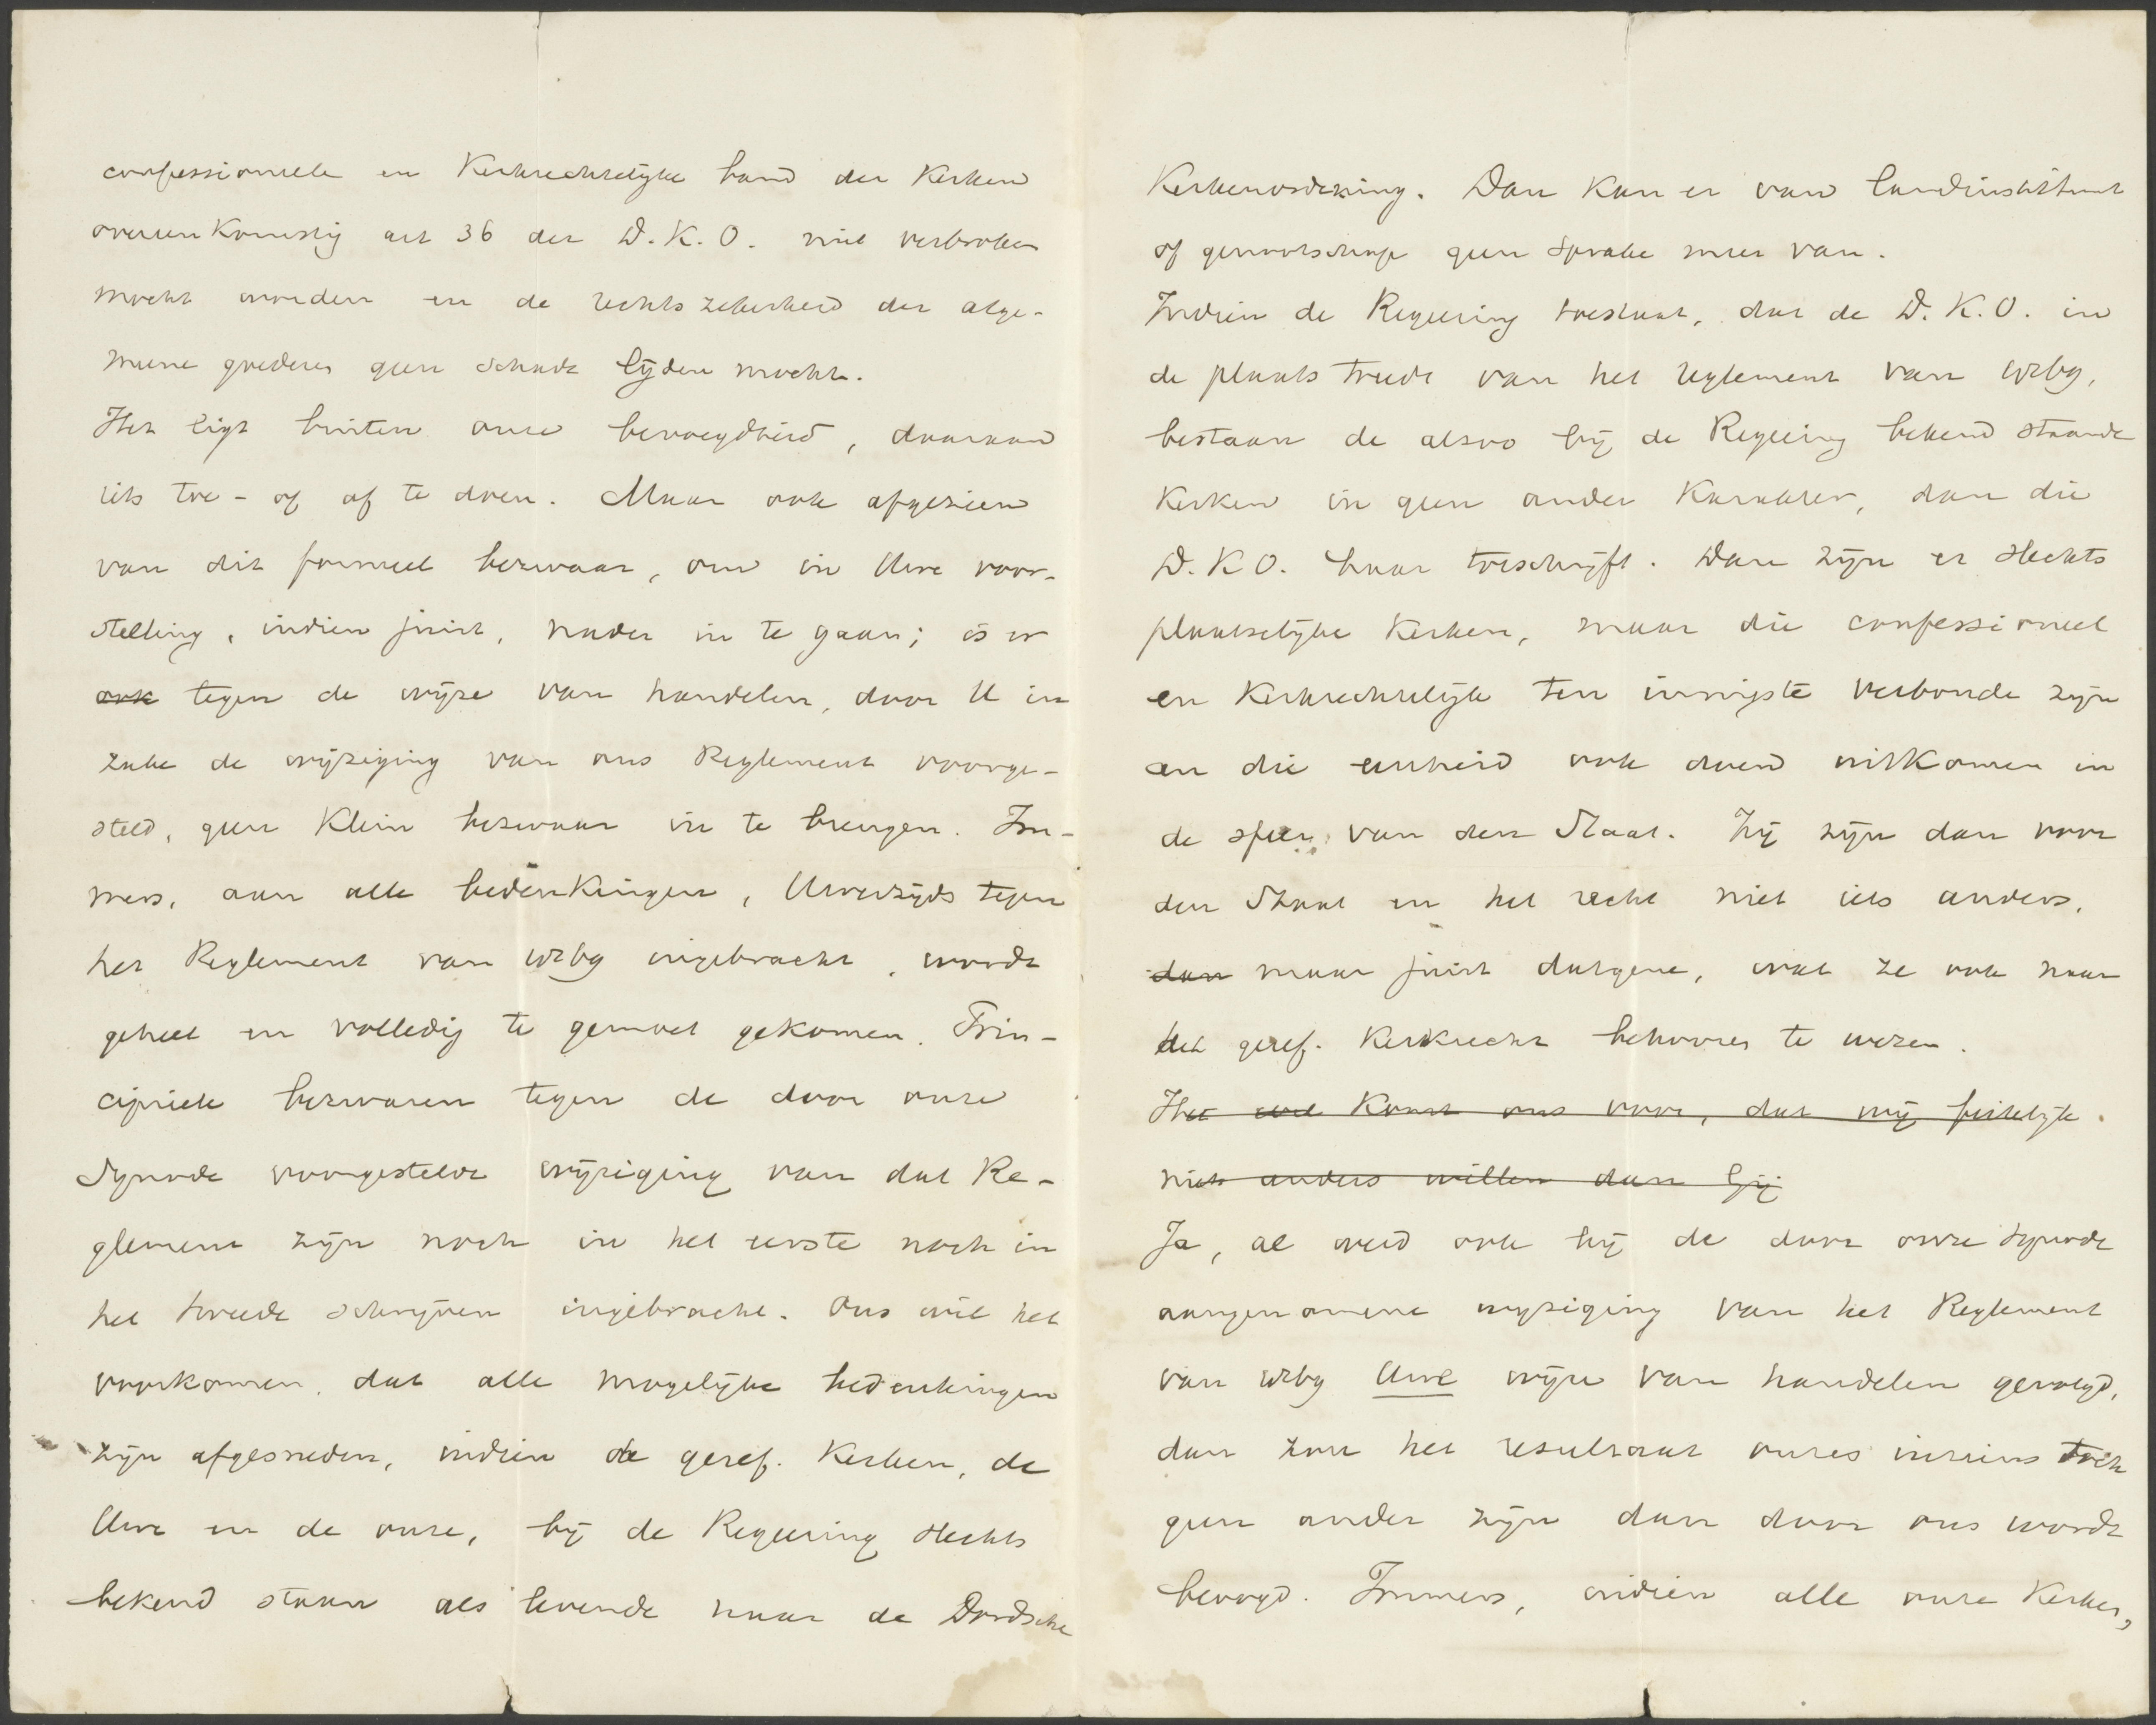 confessioneele en Kerkrechtelijke band der Kerken
overeenkomstig art 36 der D.K.O. niet verbroken
mocht worden en de rechtszekerheid der alge-
meene goederen geen schade lijden mocht.
Het ligt buiten onze bevoegdheid, daaraan
iets toe- of af te doen. Maar ook afgezien
van dit formeel bezwaar, om in Uwe voor-
stelling, indien juist, nader in te gaan; is er
ook tegen de wijze van handelen, door U in
zake de wijziging van ons Reglement voorge-
steld, geen klein bezwaar in te brengen. Im-
mers, aan alle bedenkingen, Uwerzijds tegen
het Reglement van wzbg ingebracht, wordt
geheel en volledig te gemoet gekomen. Prin-
cipieele bezwaren tegen de door onze
Synode voorgestelde wijziging van dat Re-
glement zijn noch in het eerste noch in
het tweede schrijven ingebracht. Ons wil het
voorkomen, dat alle mogelijke bedenkingen
zijn afgesneden, indien de geref. Kerken, de
Uwe en de onze, bij de Regeering slechts
bekend staan als levende naar de Dordsche
Kerkenordening. Dan kan er van landinstituut
of genootschap geen sprake meer van.
Indien de Regeering toestaat, dat de D.K.O. in
de plaats treedt van het reglement van wzbg,
bestaan de alsoo bij de Regeering bekend staande
Kerken in geen ander Karakter, dan die
D.K.O. haar toeschrijft. Dan zijn er slechts
plaatselijke Kerken, maar die confessioneel
en Kerkrechtelijk ten innigste verbonde zijn
en die eenheid ook doen uitkomen in
de sfeer van den Staat. Zij zijn dan voor
den Staat en het recht niet iets anders,
dan maar juist datgene, wat ze ook naar
het geref. Kerkrecht behooren te wezen.
Het komt ons voor, dat wij feitelijk
niets anders willen dan Gij
Ja, al werd ook bij de door onze Synode
aangenomene wijziging van het Reglement
van wzbg Uwe wijze van handelen gevolgd,
dan zou het resultaat onzes inziens toch
geen ander zijn dan door ons wordt
beoogd. Immers, indien alle onze Kerken,